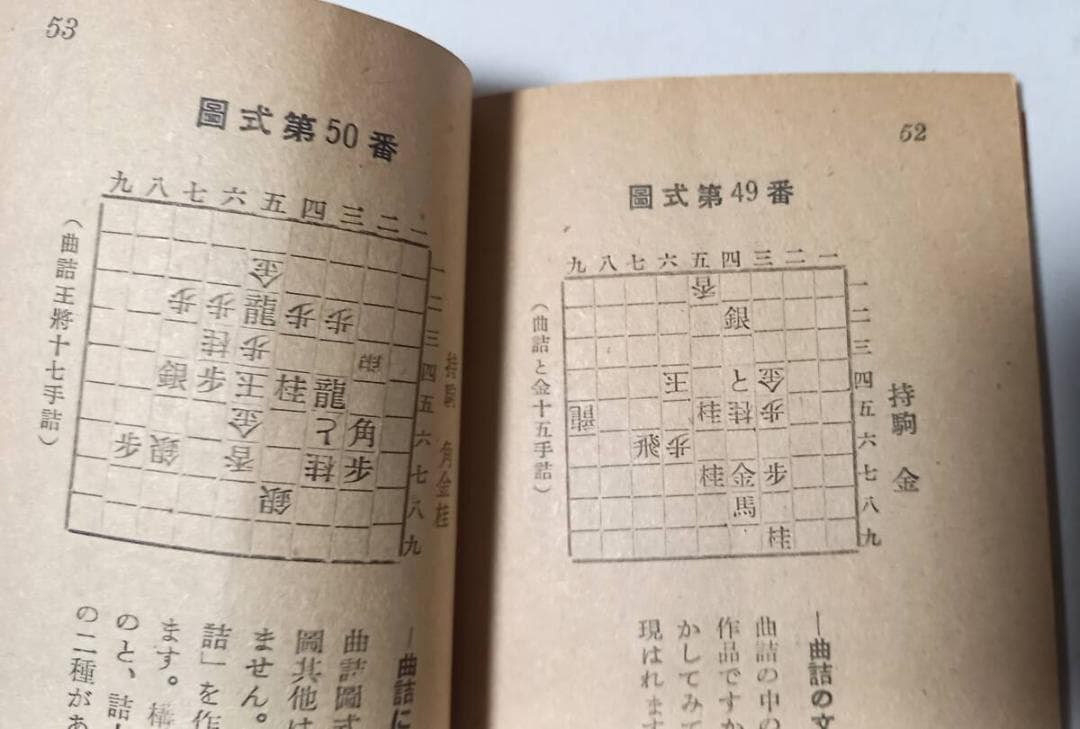 52
圖式第49番
九八七六五四三二一
香
銀
王 と 金
龍 桂 桂 歩
飛 歩
桂 金 歩
馬
桂
一二三四五六七八九
持駒 金
(曲詰と金十五手詰)
—曲詰の文
曲詰の中の
作品ですか
かしてみて
現はれます
53
圖式第50番
九八七六五四三二一
金
歩 歩 龍 歩 歩
桂 歩 銀
銀 歩 王 桂 龍
金 と 角
歩 銀 香 桂 歩
銀
一二三四五六七八九
持駒 角金桂
(曲詰王將十七手詰)
—曲詰に
曲詰圖式
圖其他は
ません。
詰」を作
ます。構
のと、詰
の二種があ